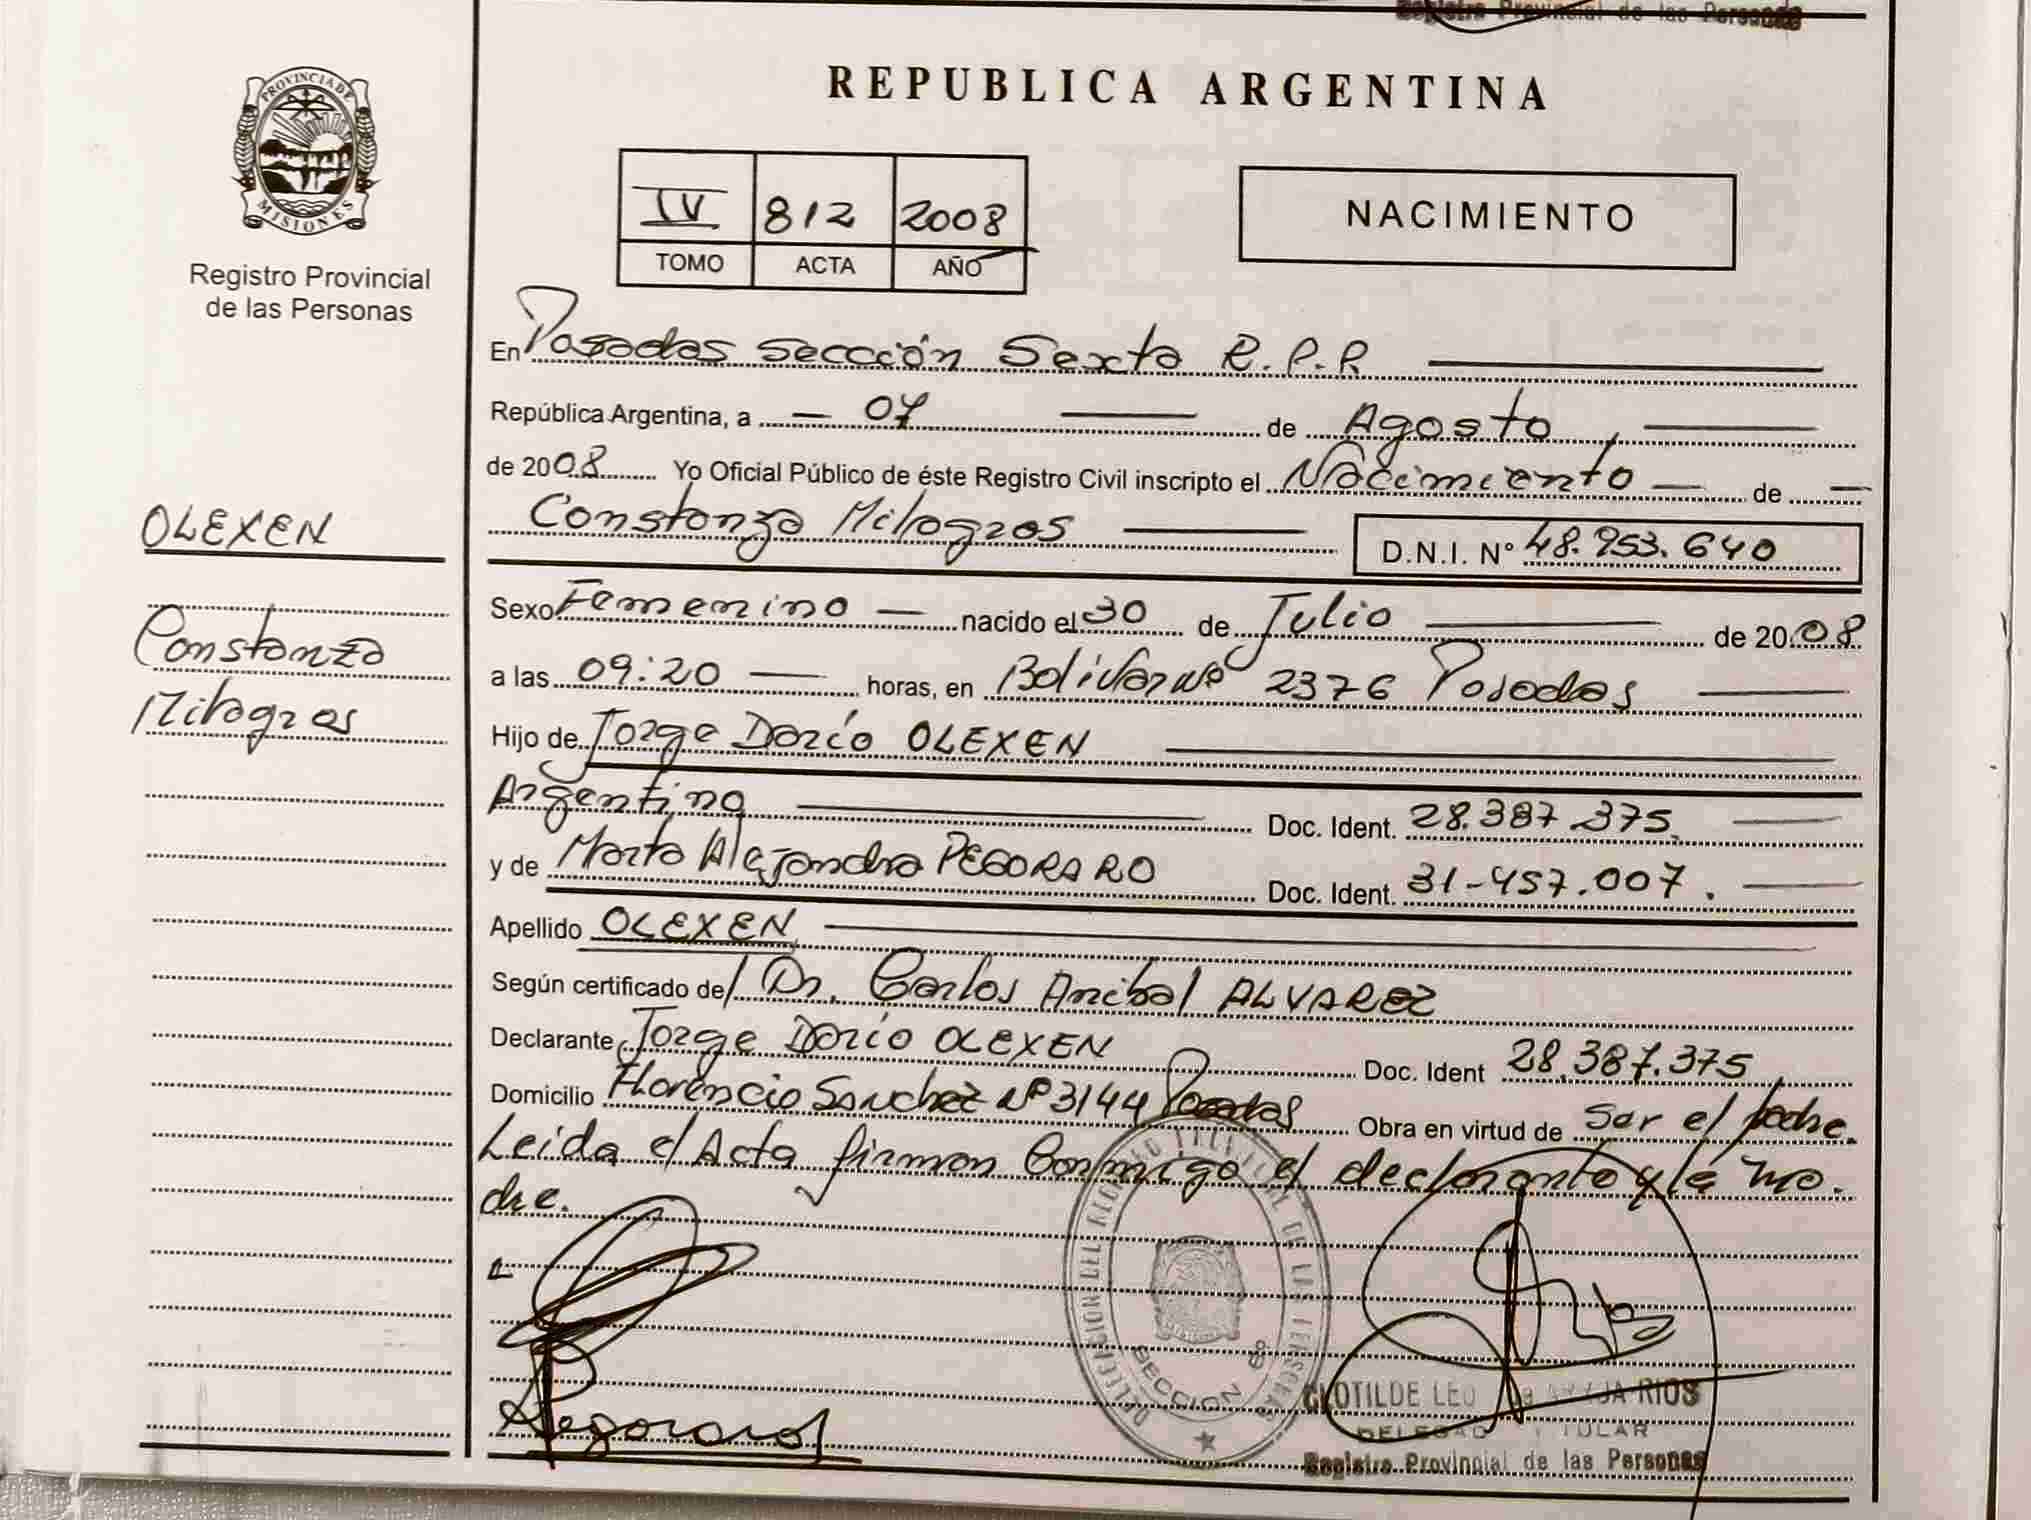 Registro Provincial de las Personas
PROVINCIA DE
MISIONES
Registro Provincial
de las Personas
REPUBLICA ARGENTINA
IV 812 2008
TOMO ACTA AÑO
NACIMIENTO
En Posadas Seccción Sexta R.P.R
República Argentina, a 07 de Agosto,
de 2008 Yo Oficial Público de éste Registro Civil inscripto el Nacimiento de
Constanza Milagros D.N.I. N° 48.953.640
OLEXEN
Constanza
Milagros
Sexo Femenino nacido el 30 de Julio de 2008
a las 09:20 horas, en Bolivar Nº 2376 Posadas
Hijo de Jorge Darío OLEXEN
Argentina Doc. Ident. 28.387.375.
y de Marta Alejandra PEGORARO Doc. Ident. 31-457.007.
Apellido OLEXEN
Según certificado del Dr. Carlos Anibal ALVAREZ
Declarante Jorge Darío OLEXEN Doc. Ident 28.387.375
Domicilio Florencio Sanchez Nº 3144 Posadas Obra en virtud de ser el padre.
Leida el Acta firman Conmigo el declarante y la ma.
dre.
SECCION 6º
CLOTILDE RIOS
Registro Provincial de las Personas